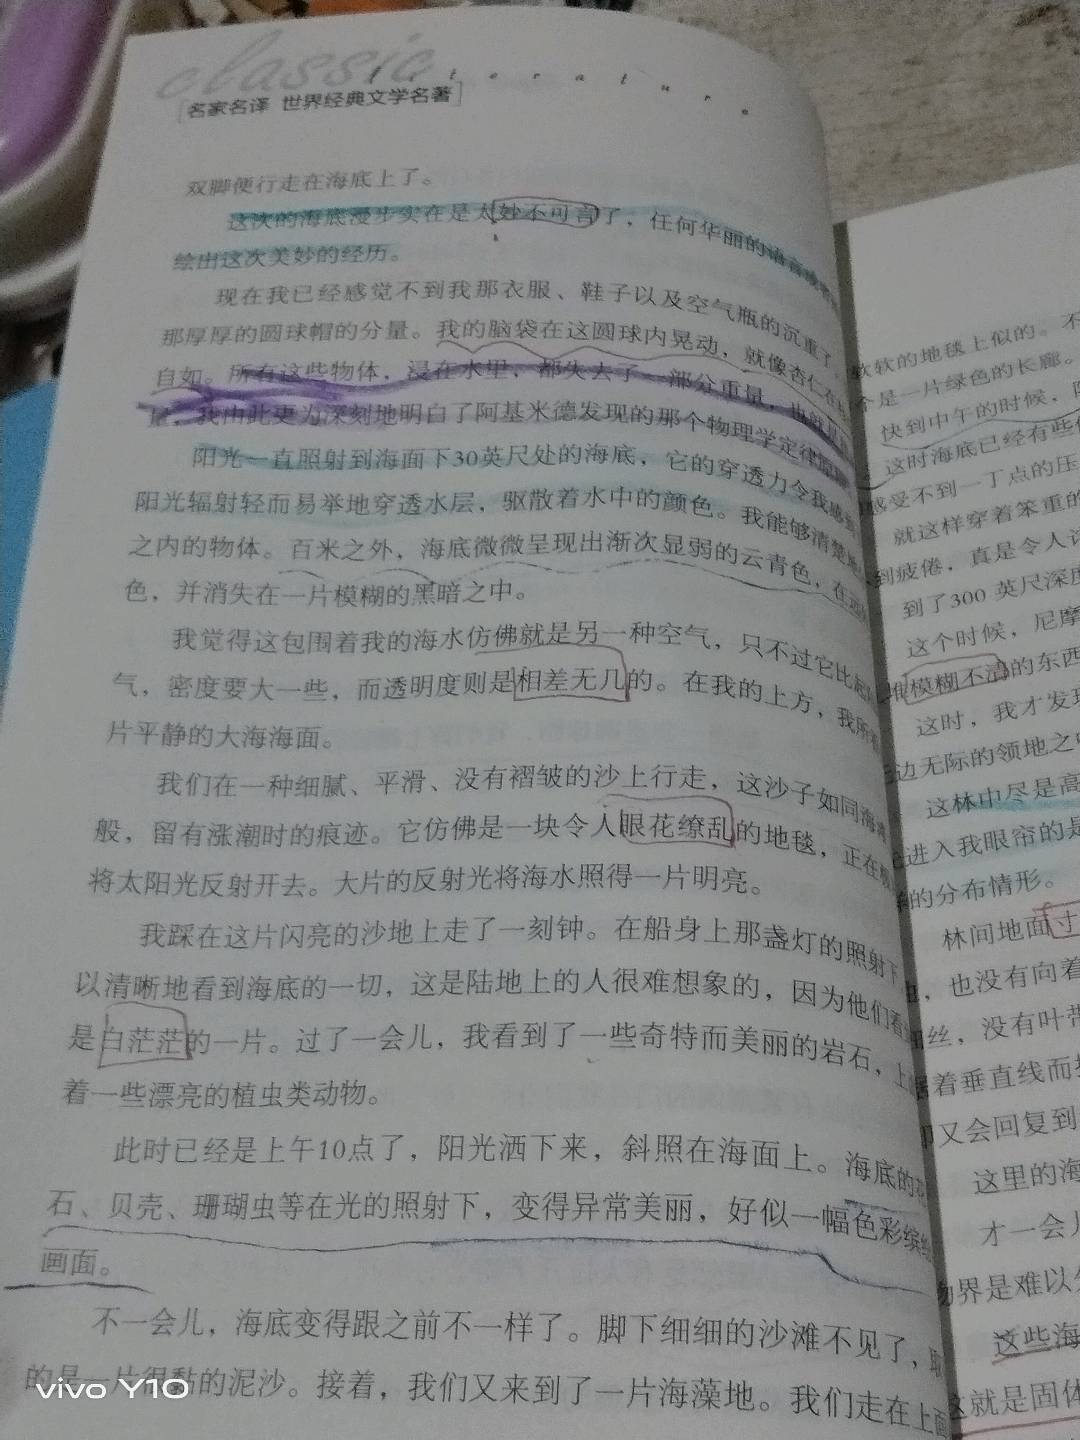 classic
literature
名家名译 世界经典文学名著
双脚便行走在海底上了。
这次的海底漫步实在是太妙不可言了，任何华丽的语言
绘出这次美妙的经历。
现在我已经感觉不到我那衣服、鞋子以及空气瓶的沉重了
那厚厚的圆球帽的分量。我的脑袋在这圆球内晃动，就像杏仁在
自如。所有这些物体，浸在水里，都失去了一部分重量，也就是
量，我由此更为深刻地明白了阿基米德发现的那个物理学定律
阳光一直照射到海面下30英尺处的海底，它的穿透力令我感
阳光辐射轻而易举地穿透水层，驱散着水中的颜色。我能够清楚地
之内的物体。百米之外，海底微微呈现出渐次显弱的云青色，在远
色，并消失在一片模糊的黑暗之中。
我觉得这包围着我的海水仿佛就是另一种空气，只不过它比起
气，密度要大一些，而透明度则是相差无几的。在我的上方，我所
片平静的大海海面。
我们在一种细腻、平滑、没有褶皱的沙上行走，这沙子如同海
般，留有涨潮时的痕迹。它仿佛是一块令人眼花缭乱的地毯，正在
将太阳光反射开去。大片的反射光将海水照得一片明亮。
我踩在这片闪亮的沙地上走了一刻钟。在船身上那盏灯的照射下
以清晰地看到海底的一切，这是陆地上的人很难想象的，因为他们看
是白茫茫的一片。过了一会儿，我看到了一些奇特而美丽的岩石，上
着一些漂亮的植虫类动物。
此时已经是上午10点了，阳光洒下来，斜照在海面上。海底的
石、贝壳、珊瑚虫等在光的照射下，变得异常美丽，好似一幅色彩缤
画面。
不一会儿，海底变得跟之前不一样了。脚下细细的沙滩不见了，取
的是一片很黏的泥沙。接着，我们又来到了一片海藻地。我们走在上面
软软的地毯上似的。不
个是一片绿色的长廊。
快到中午的时候，
这时海底已经有些
感受不到一丁点的压
就这样穿着笨重的
到疲倦，真是令人
到了300 英尺深度
这个时候，尼摩
模糊不清的东西
这时，我才发现
边无际的领地之
这林中尽是高
进入我眼帘的是
的分布情形。
林间地面寸
，也没有向着
丝，没有叶
着垂直线而
又会回复到
这里的海
才一会儿
物界是难以
这些海
这就是固体
vivo Y10